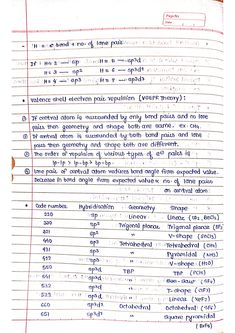 Page No.
Date
- H = σ bond + no. of lone pair
If H = 2 — sp H = 5 — sp³d
H = 3 — sp² H = 6 — sp³d²
H = 4 — sp³ H = 7 — sp³d³
* Valence shell electron pair repulsion (VSEPR Theory) :
① If central atom is surrounded by only bond pairs and no lone
pairs then geometry and shape both are same. ex- CH₄.
② If central atom is surrounded by both bond pairs and lone
pairs then geometry and shape both are different.
③ The order of repulsion of various types of e⁻ pairs is :
lp-lp > lp-bp > bp-bp.
④ Lone pair of central atom reduces bond angle from expected value.
Decrease in bond angle from expected value ∝ no. of lone pairs
on central atom
* Code number Hybridisation Geometry Shape
220 sp Linear Linear
330 sp² Trigonal planar Trigonal planar
321 sp² " V-shape
440 sp³ Tetrahedral Tetrahedral
431 sp³ " Pyramidal
422 sp³ " V-shape
550 sp³d TBP TBP
541 sp³d "
532 sp³d " T-shape
523 sp³d " Linear
660 sp³d² Octahedral Octahedral
651 sp³d² " Square pyramidal